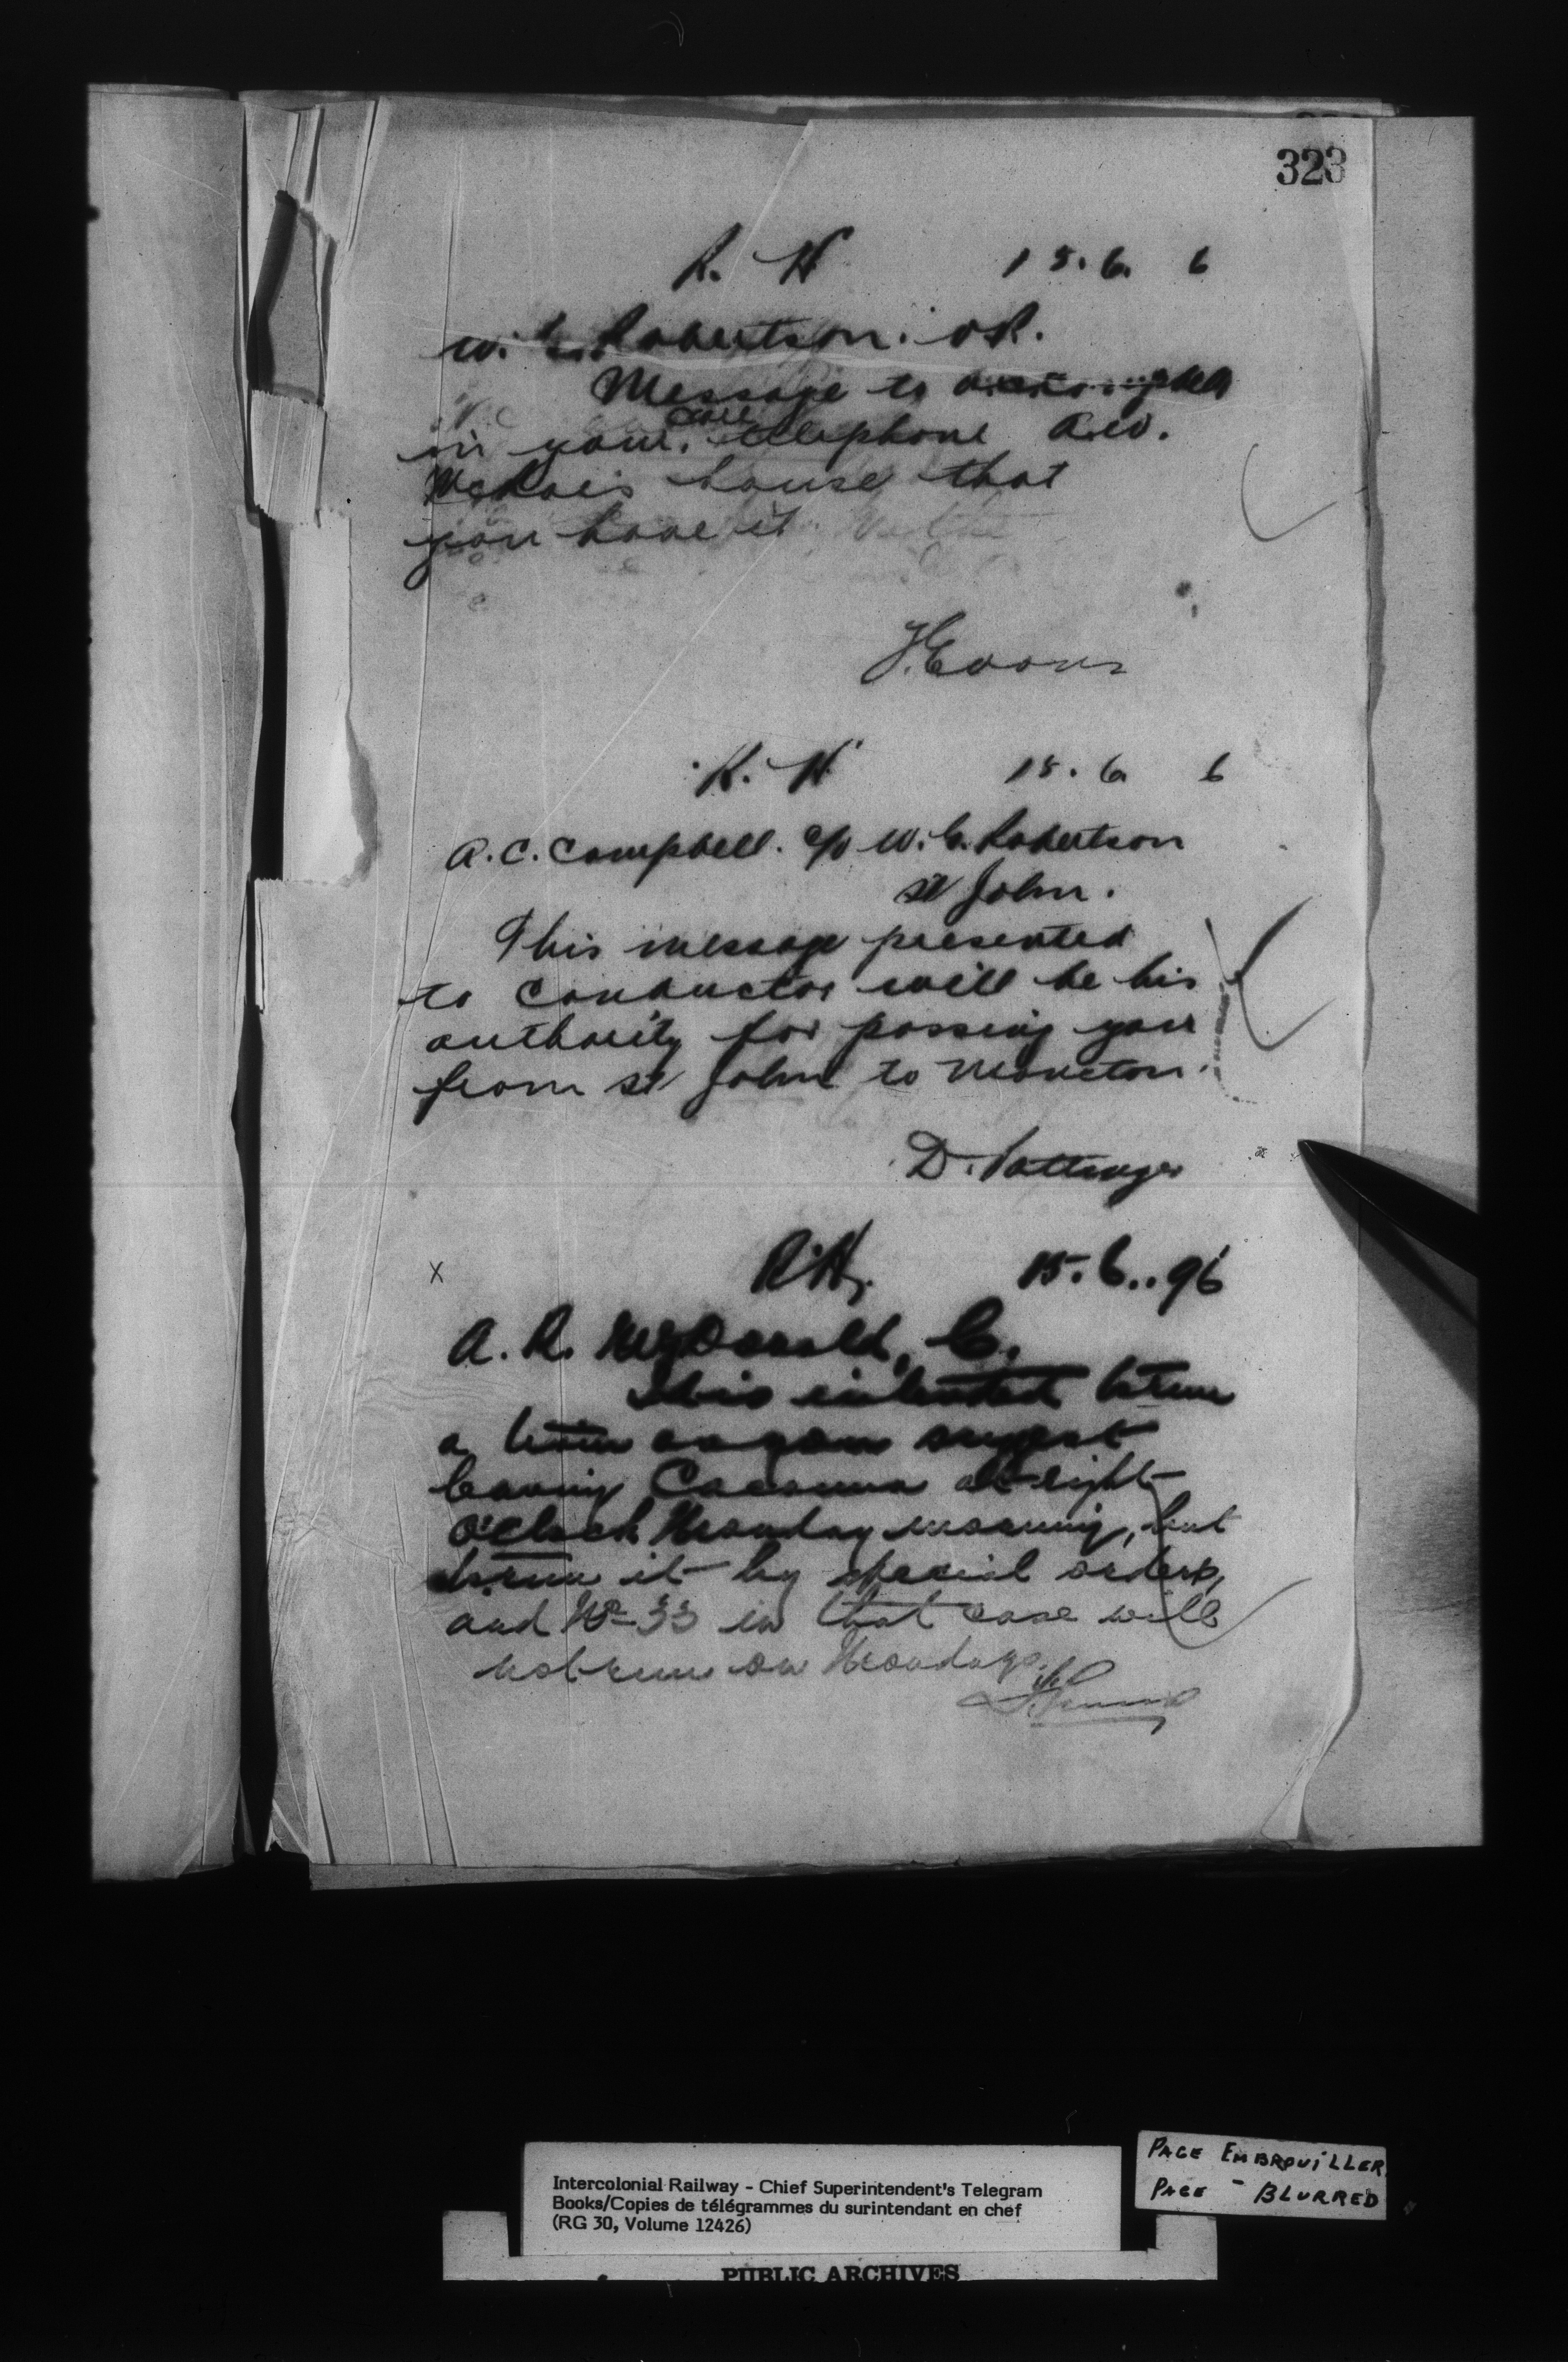 323
R. H 15. 6. 6
W. C. Robertson. OR.
Message to
in your care telephone A.W.
McRae's house that
you have it
J. Evans
R. H. 15. 6 6
A. C. Campbell. c/o W. C. Robertson
St John.
This message presented
to Conductor will be his
authority for passing you
from St John to Moncton.
D. Pottinger
x R. H. 15. 6.. 96
A. R. McDonald, C.
intended to run
a train as you suggest
leaving Cacouna at eight
O'Clock Monday morning, but
to run it by special orders,
and No 33 in that case will
not run on Mondays.
Intercolonial Railway - Chief Superintendent's Telegram
Books/Copies de télégrammes du surintendant en chef
(RG 30, Volume 12426)
PAGE EMBROUILLER
PAGE - BLURRED
PUBLIC ARCHIVES